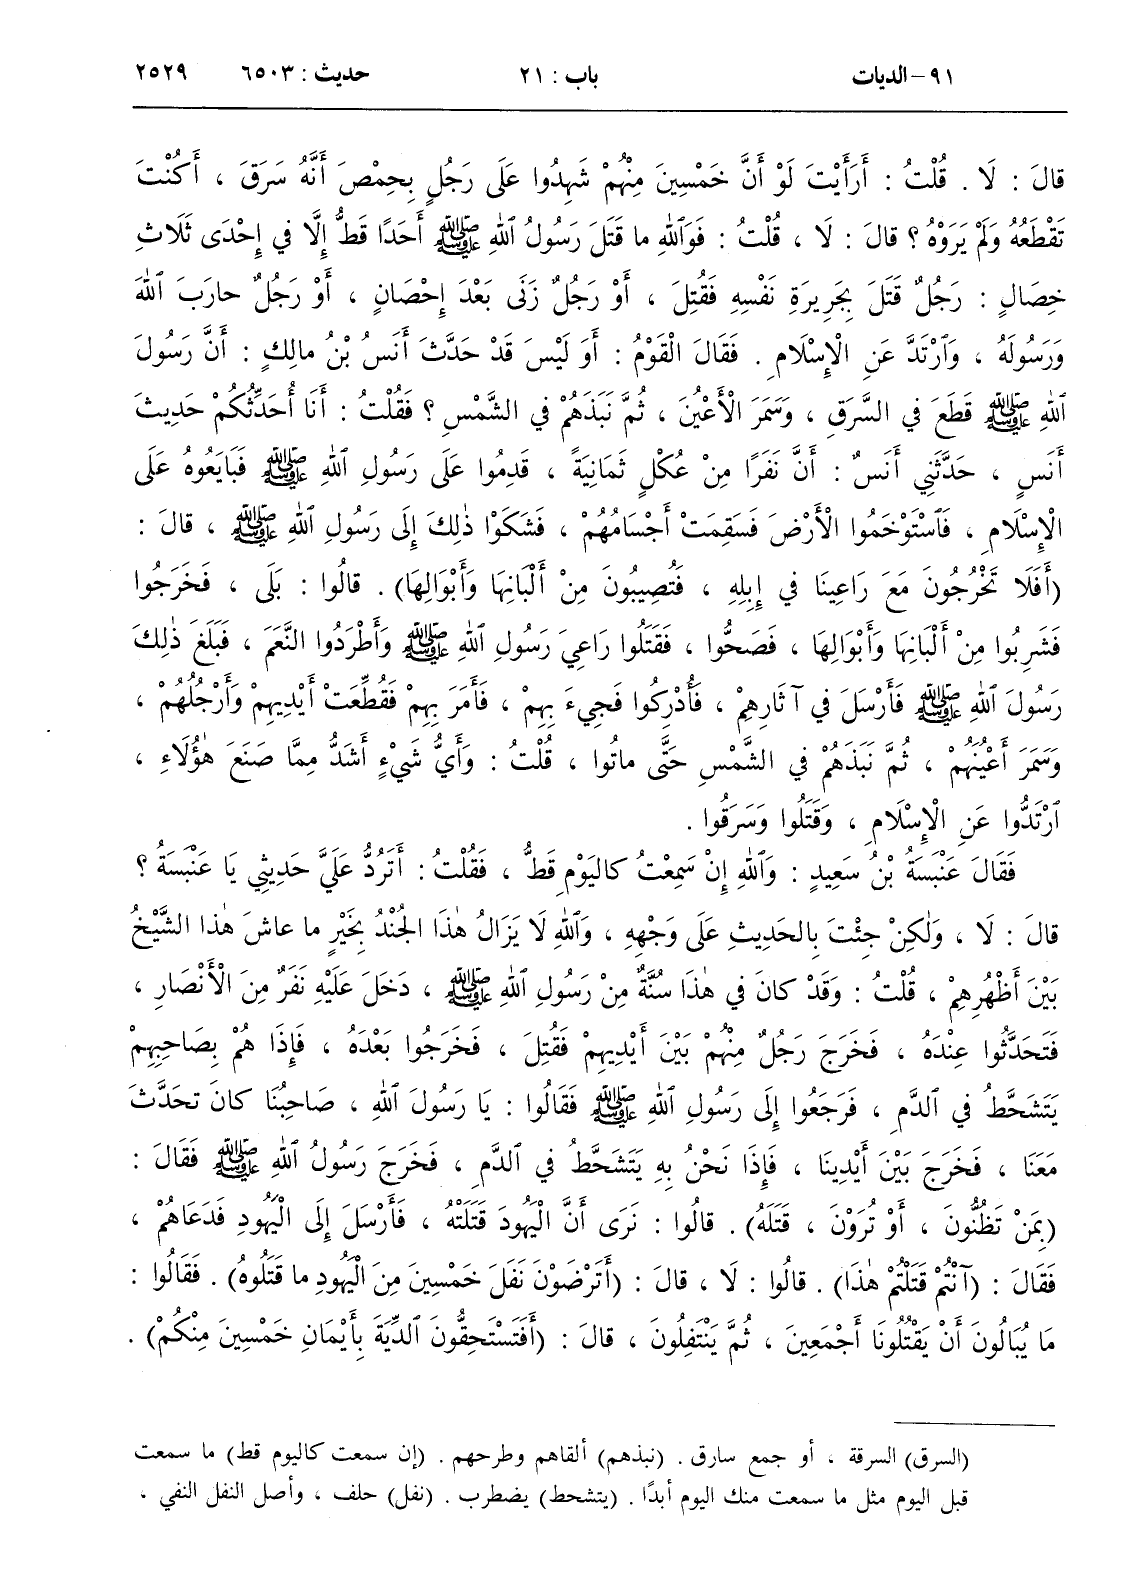 ٩١-الديات باب : ٢١ حديث : ٦٥٠٣ ٢٥٢٩
قالَ : لَا . قُلْتُ : أَرَأَيْتَ لَوْ أَنَّ خَمْسِينَ مِنْهُمْ شَهِدُوا عَلَى رَجُلٍ بِحِمْصَ أَنَّهُ سَرَقَ ، أَكُنْتَ
تَقْطَعُهُ وَلَمْ يَرَوْهُ ؟ قالَ : لَا ، قُلْتُ : فَوَٱللهِ ما قَتَلَ رَسُولُ ٱللهِ ﷺ أَحَدًا قَطُّ إِلَّا في إِحْدَى ثَلَاثِ
خِصَالٍ : رَجُلٌ قَتَلَ بِجَرِيرَةِ نَفْسِهِ فَقُتِلَ ، أَوْ رَجُلٌ زَنَى بَعْدَ إِحْصَانٍ ، أَوْ رَجُلٌ حارَبَ ٱللهَ
وَرَسُولَهُ ، وَٱرْتَدَّ عَنِ الْإِسْلَامِ . فَقَالَ الْقَوْمُ : أَوَ لَيْسَ قَدْ حَدَّثَ أَنَسُ بْنُ مالِكٍ : أَنَّ رَسُولَ
ٱللهِ ﷺ قَطَعَ في السَّرَقِ ، وَسَمَرَ الْأَعْيُنَ ، ثُمَّ نَبَذَهُمْ في الشَّمْسِ ؟ فَقُلْتُ : أَنَا أُحَدِّثُكُمْ حَدِيثَ
أَنَسٍ ، حَدَّثَنِي أَنَسٌ : أَنَّ نَفَرًا مِنْ عُكْلٍ ثَمَانِيَةً ، قَدِمُوا عَلَى رَسُولِ ٱللهِ ﷺ فَبَايَعُوهُ عَلَى
الْإِسْلَامِ ، فَٱسْتَوْخَمُوا الْأَرْضَ فَسَقِمَتْ أَجْسَامُهُمْ ، فَشَكَوْا ذٰلِكَ إِلَى رَسُولِ ٱللهِ ﷺ ، قالَ :
(أَفَلَا تَخْرُجُونَ مَعَ رَاعِينَا في إِبِلِهِ ، فَتُصِيبُونَ مِنْ أَلْبَانِهَا وَأَبْوَالِهَا) . قالُوا : بَلَى ، فَخَرَجُوا
فَشَرِبُوا مِنْ أَلْبَانِهَا وَأَبْوَالِهَا ، فَصَحُّوا ، فَقَتَلُوا رَاعِيَ رَسُولِ ٱللهِ ﷺ وَأَطْرَدُوا النَّعَمَ ، فَبَلَغَ ذٰلِكَ
رَسُولَ ٱللهِ ﷺ فَأَرْسَلَ في آثَارِهِمْ ، فَأُدْرِكُوا فَجِيءَ بِهِمْ ، فَأَمَرَ بِهِمْ فَقُطِّعَتْ أَيْدِيهِمْ وَأَرْجُلُهُمْ ،
وَسَمَرَ أَعْيُنَهُمْ ، ثُمَّ نَبَذَهُمْ في الشَّمْسِ حَتَّى ماتُوا ، قُلْتُ : وَأَيُّ شَيْءٍ أَشَدُّ مِمَّا صَنَعَ هٰؤُلَاءِ ،
ٱرْتَدُّوا عَنِ الْإِسْلَامِ ، وَقَتَلُوا وَسَرَقُوا .
فَقَالَ عَنْبَسَةُ بْنُ سَعِيدٍ : وَٱللهِ إِنْ سَمِعْتُ كاليَوْمِ قَطُّ ، فَقُلْتُ : أَتَرُدُّ عَلَيَّ حَدِيثِي يَا عَنْبَسَةُ ؟
قالَ : لَا ، وَلٰكِنْ جِئْتَ بِالحَدِيثِ عَلَى وَجْهِهِ ، وَٱللهِ لَا يَزَالُ هٰذَا الجُنْدُ بِخَيْرٍ ما عاشَ هٰذا الشَّيْخُ
بَيْنَ أَظْهُرِهِمْ ، قُلْتُ : وَقَدْ كانَ في هٰذَا سُنَّةٌ مِنْ رَسُولِ ٱللهِ ﷺ ، دَخَلَ عَلَيْهِ نَفَرٌ مِنَ الْأَنْصَارِ ،
فَتَحَدَّثُوا عِنْدَهُ ، فَخَرَجَ رَجُلٌ مِنْهُمْ بَيْنَ أَيْدِيهِمْ فَقُتِلَ ، فَخَرَجُوا بَعْدَهُ ، فَإِذَا هُمْ بِصَاحِبِهِمْ
يَتَشَحَّطُ في ٱلدَّمِ ، فَرَجَعُوا إِلَى رَسُولِ ٱللهِ ﷺ فَقَالُوا : يَا رَسُولَ ٱللهِ ، صَاحِبُنَا كانَ تحَدَّثَ
مَعَنَا ، فَخَرَجَ بَيْنَ أَيْدِينَا ، فَإِذَا نَحْنُ بِهِ يَتَشَحَّطُ في ٱلدَّمِ ، فَخَرَجَ رَسُولُ ٱللهِ ﷺ فَقَالَ :
(بِمَنْ تَظُنُّونَ ، أَوْ تُرَوْنَ ، قَتَلَهُ) . قالُوا : نَرَى أَنَّ الْيَهُودَ قَتَلَتْهُ ، فَأَرْسَلَ إِلَى الْيَهُودِ فَدَعَاهُمْ ،
فَقَالَ : (آنْتُمْ قَتَلْتُمْ هٰذَا) . قالُوا : لَا ، قالَ : (أَتَرْضَوْنَ نَفَلَ خَمْسِينَ مِنَ الْيَهُودِ ما قَتَلُوهُ) . فَقَالُوا :
مَا يُبَالُونَ أَنْ يَقْتُلُونَا أَجْمَعِينَ ، ثُمَّ يَنْتَفِلُونَ ، قالَ : (أَفَتَسْتَحِقُّونَ ٱلدِّيَةَ بِأَيْمَانِ خَمْسِينَ مِنْكُمْ) .
(السرق) السرقة ، أو جمع سارق . (نبذهم) ألقاهم وطرحهم . (إن سمعت كاليوم قط) ما سمعت
قبل اليوم مثل ما سمعت منك اليوم أبدًا . (يتشحط) يضطرب . (نفل) حلف ، وأصل النفل النفي ،